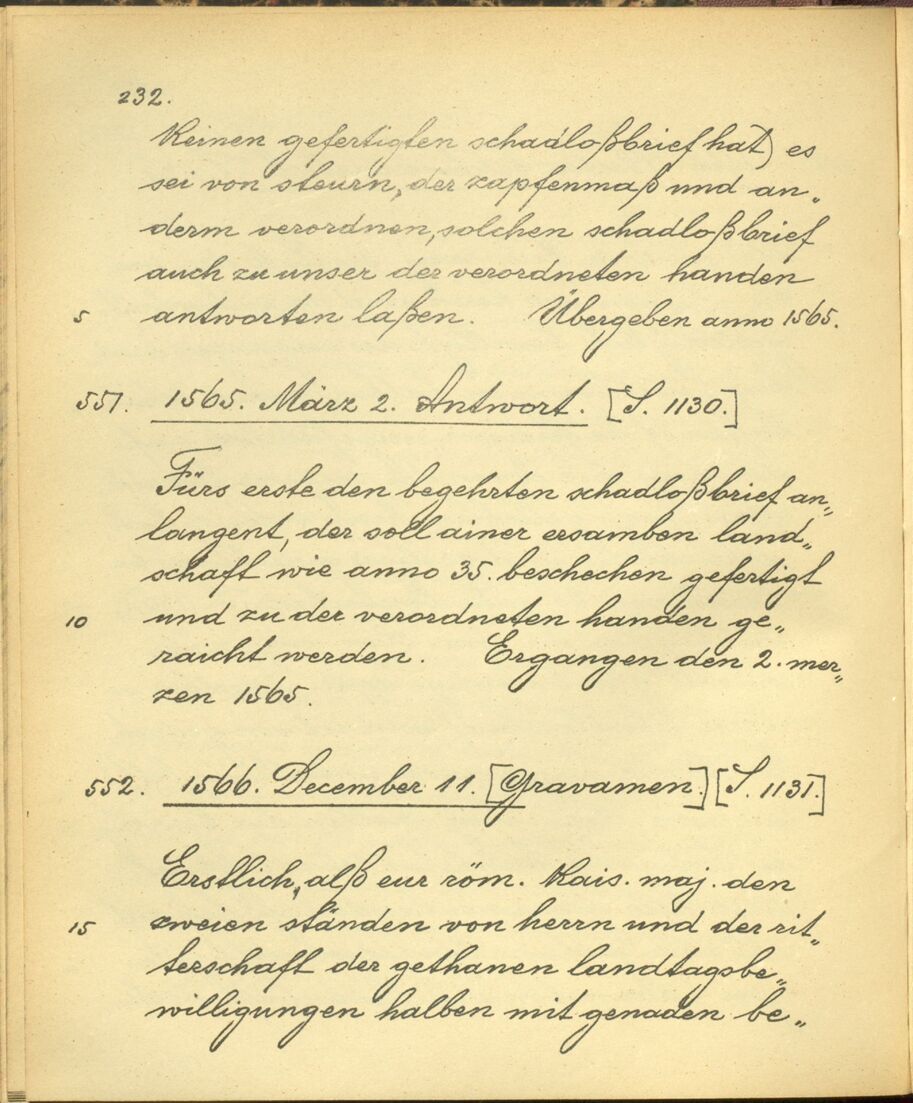 232.
keinen gefertigten schadloßbrief hat) es
sei von steurn, der zapfenmaß und an„
derm verordnen, solchen schadloßbrief
auch zu unser der verordneten handen
5 antworten laßen. Übergeben anno 1565.
551. 1565. März 2. Antwort. [S. 1130.]
Fürs erste den begehrten schadloßbrief an„
langent, der soll ainer ersamben land„
schaft wie anno 35. beschechen gefertigt
10 und zu der verordneten handen ge„
raicht werden. Ergangen den 2. mer„
zen 1565.
552. 1566. December 11. [Gravamen.] [S. 1131.]
Erstlich, alß eur röm. kais. maj. den
15 zweien ständen von herrn und der rit„
terschaft der gethanen landtagsbe„
willigungen halben mit genaden be„